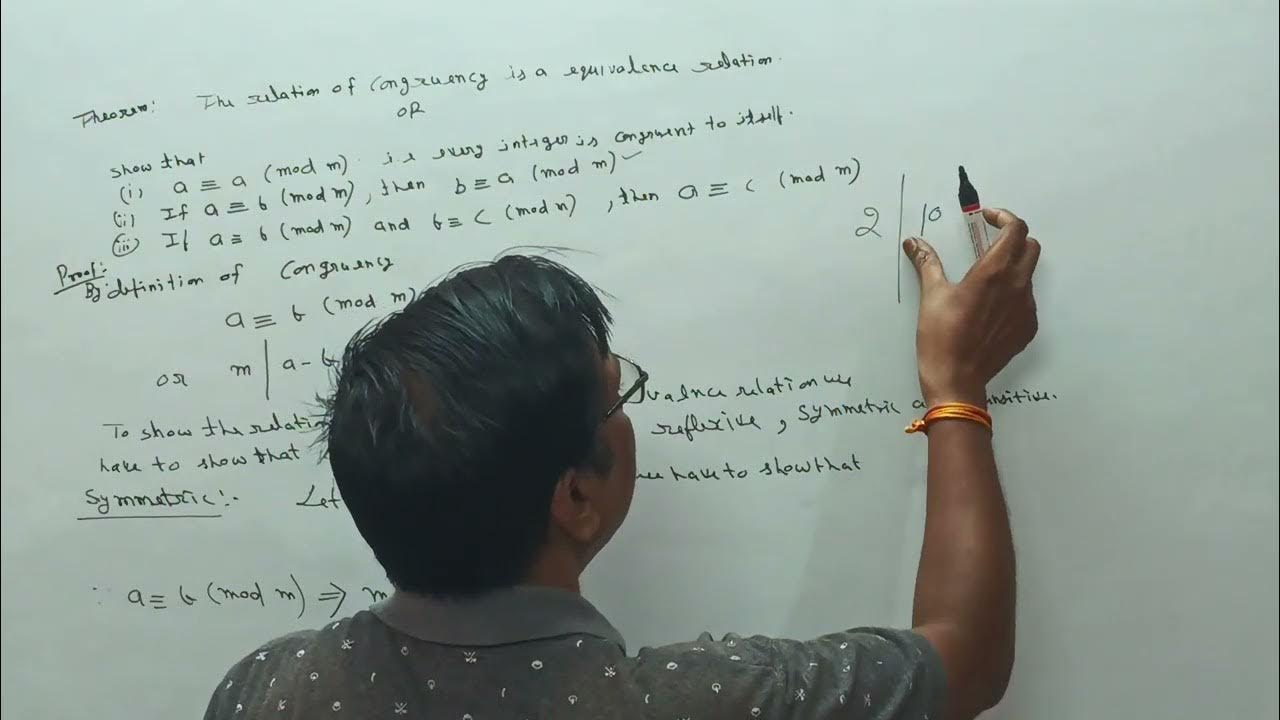 Theorem: The relation of congruency is a equivalence relation.
OR
show that
(i) a ≡ a (mod m) i.e every integer is congruent to itself.
(ii) If a ≡ b (mod m), then b ≡ a (mod m) ✓
(iii) If a ≡ b (mod m) and b ≡ c (mod m), then a ≡ c (mod m)
2 | 10
Proof:
By definition of congruency
a ≡ b (mod m)
or m | a - b
To show the relation valnce relation we
have to show that reflexive, symmetric
Symmetric:- Let we have to show that
∵ a ≡ b (mod m) ⇒ m